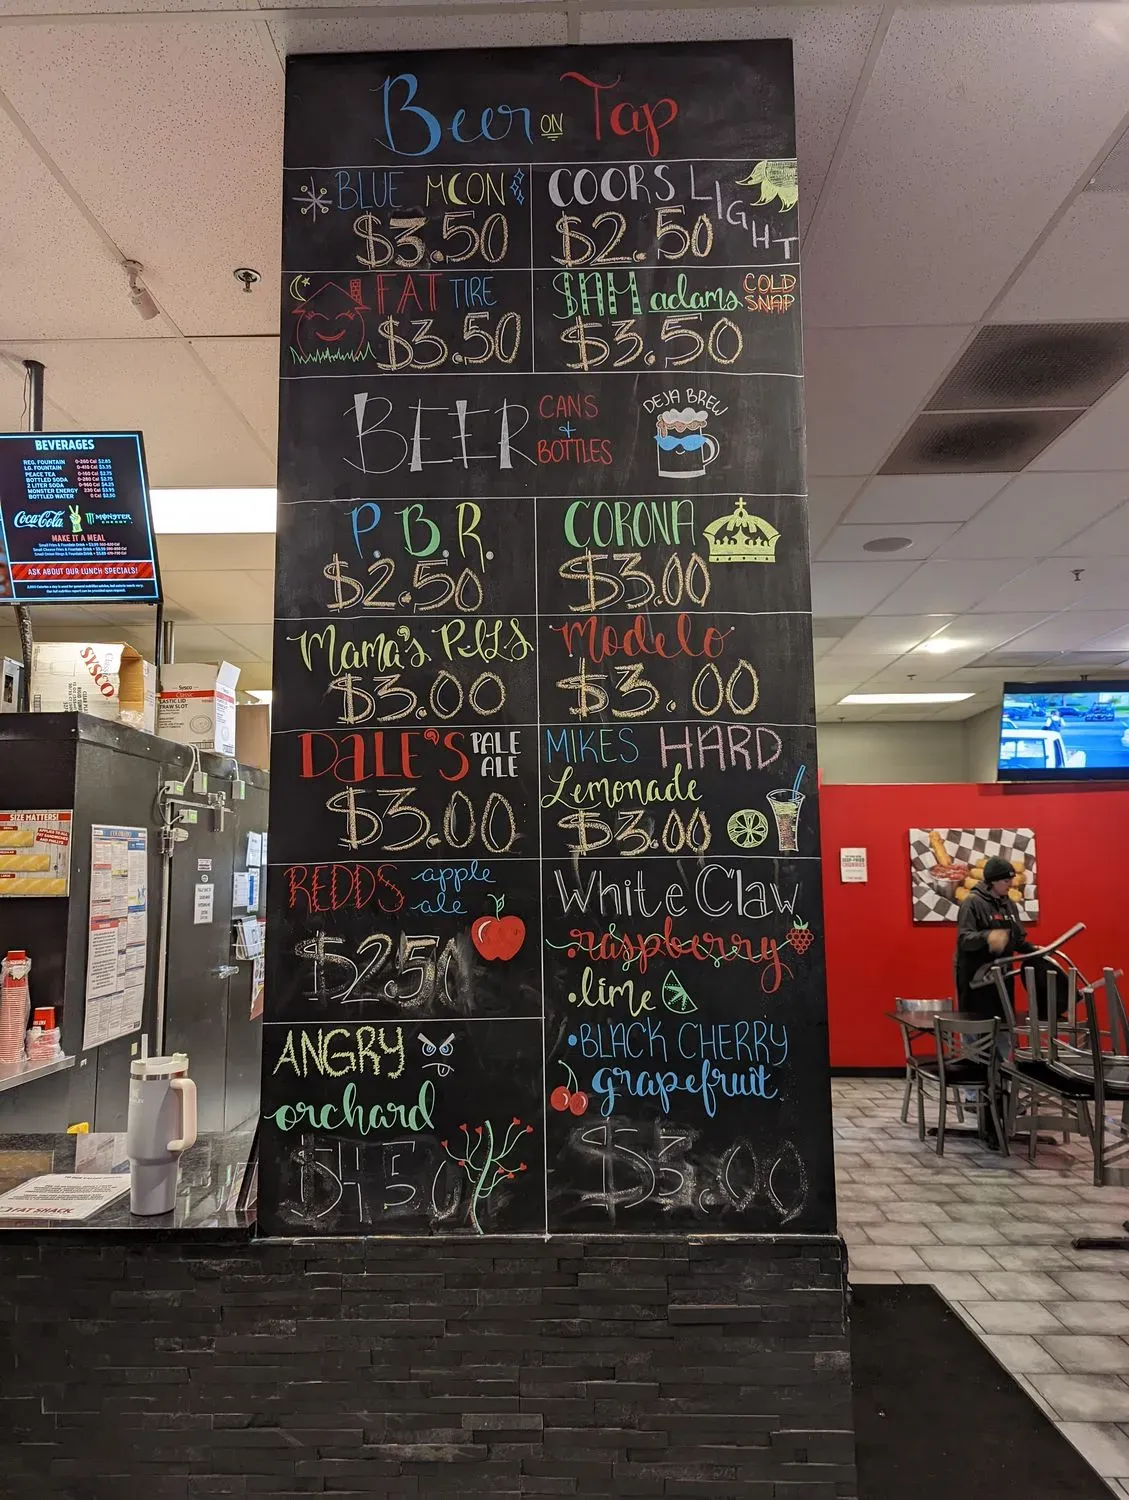 Beer ON Tap
BLUE MOON
$3.50
COORS LIGHT
$2.50
FAT TIRE
$3.50
SAM adams COLD SNAP
$3.50
BEER CANS + BOTTLES
DEJA BREW
P.B.R.
$2.50
CORONA
$3.00
Mama's PILS
$3.00
Modelo
$3.00
DALE'S PALE ALE
$3.00
MIKES HARD
Lemonade
$3.00
REDDS apple ale
$2.50
White Claw
• raspberry
• lime
• BLACK CHERRY
grapefruit
$3.00
ANGRY
orchard
BEVERAGES
REG. FOUNTAIN
LG. FOUNTAIN
PEACE TEA
BOTTLED SODA
2 LITER SODA
MONSTER ENERGY
BOTTLED WATER
Coca-Cola
MONSTER
MAKE IT A MEAL
ASK ABOUT OUR LUNCH SPECIALS!
SYSCO
Sysco
Classic
SIZE MATTERS!
COLORADO
FAT SHACK